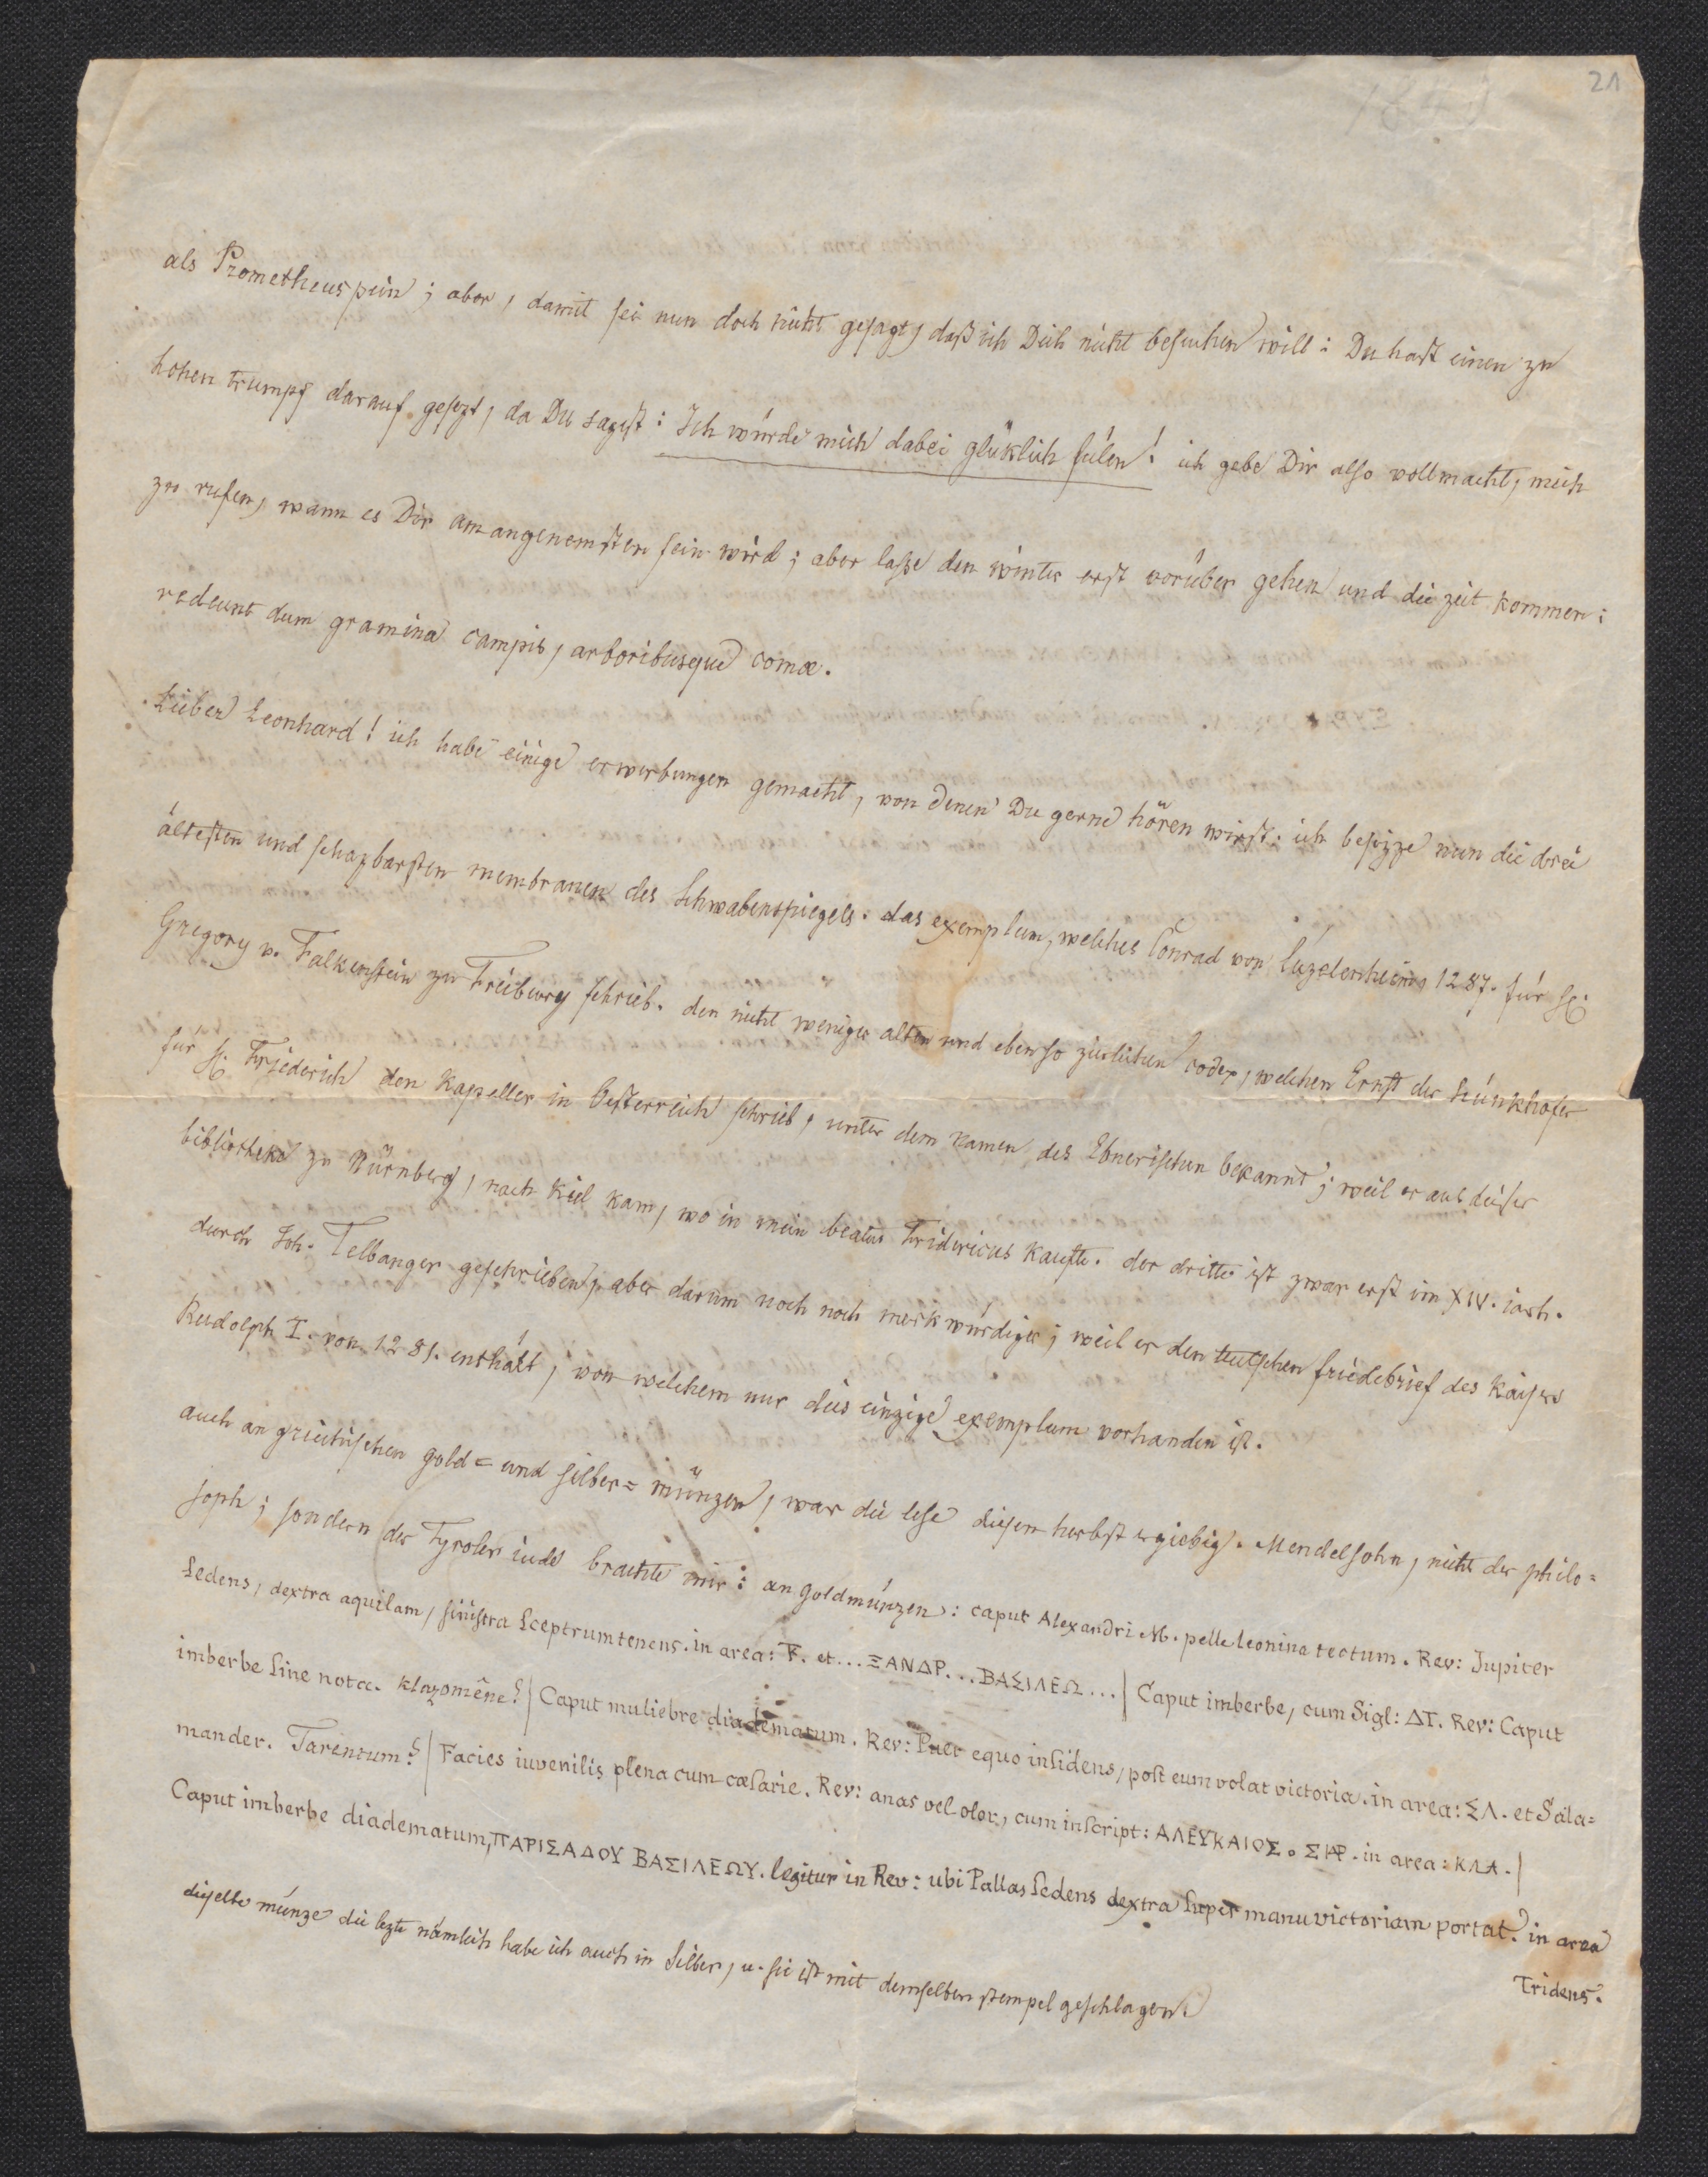 21
als Prometheus pein; aber, damit sei nun doch nicht gesagt, daß ich Dich nicht besuchen will: Du hast einen zu
hohen trumpf darauf gesezt, da Du sagst: Ich würde mich dabei glüklich fülen! ich gebe Dir also vollmacht, mich
zu rufen, wann es Dir am angenemsten sein wird; aber laße den winter erst vorüber gehen und die zeit kommen:
redeunt dum gramina campis, arboribusque comæ.
Lieber Leonhard! ich habe einige erwerbungen gemacht, von denen Du gerne hören wirst: ich besizze nun die drei
ältesten und schazbarsten membranen des Schwabenspiegels. das exemplum, welches Conrad von Luzelenheim 1287. für H:
Gregory v. Falkenstein zu Freiburg schrieb. den nicht weniger alten und eben so zierlichen codex, welchen Ernst der Húnkhofer
für H: Friederich den Kapeller in Oesterreich schrieb, unter dem namen des Ebnerischen bekannt; weil er aus dieser
bibliotheke zu Nürnberg, nach Kiel kam, wo in mein beatus Fridericus kaufte. der dritte ist zwar erst im XIV. iarh.
durch Joh. Telbanger geschrieben, aber darum noch noch merkwürdiger; weil er den teutschen friedebrief des Kaisers
Rudolph I. von 1281. enthält, von welchem nur dies einzige exemplum vorhanden ist.
auch an griechischen gold= und silber= münzen, war die lese diesen herbst ergiebig. Mendelsohn, nicht der philo=
soph; sondern der Tyroler iude brachte mir: an goldmünzen: caput Alexandri M. pelle leonina tectum. Rev: Jupiter
sedens, dextra aquilam, sinistra sceptrum tenens. in area: F. et ... ΞΑΝΔΡ... ΒΑΣΙΛΕΩ ... | Caput imberbe, cum Sigl: ΔΤ. Rev: Caput
imberbe sine nota. Klazomene? | Caput muliebre diadematum. Rev: Puer equo insidens, post eum volat victoria. in area: ΣΛ. et Sala=
mander. Tarentum? | Facies iuvenilis plena cum cæsarie. Rev: anas vel olor, cum inscript: ΑΛΕΥΚΑΙΟΣ. ΣΙΑΡ. in area: ΚΛΑ. |
Caput imberbe diadematum, ΠΑΡΙΣΑΔΟΥ ΒΑΣΙΛΕΩΥ. legitur in Rev: ubi Pallas sedens dextra super manu victoriam portat. in area
Tridens.
dieselbe münze die lezte nämlich habe ich auch in silber, u. sie ist mit demselben stempel geschlagen.